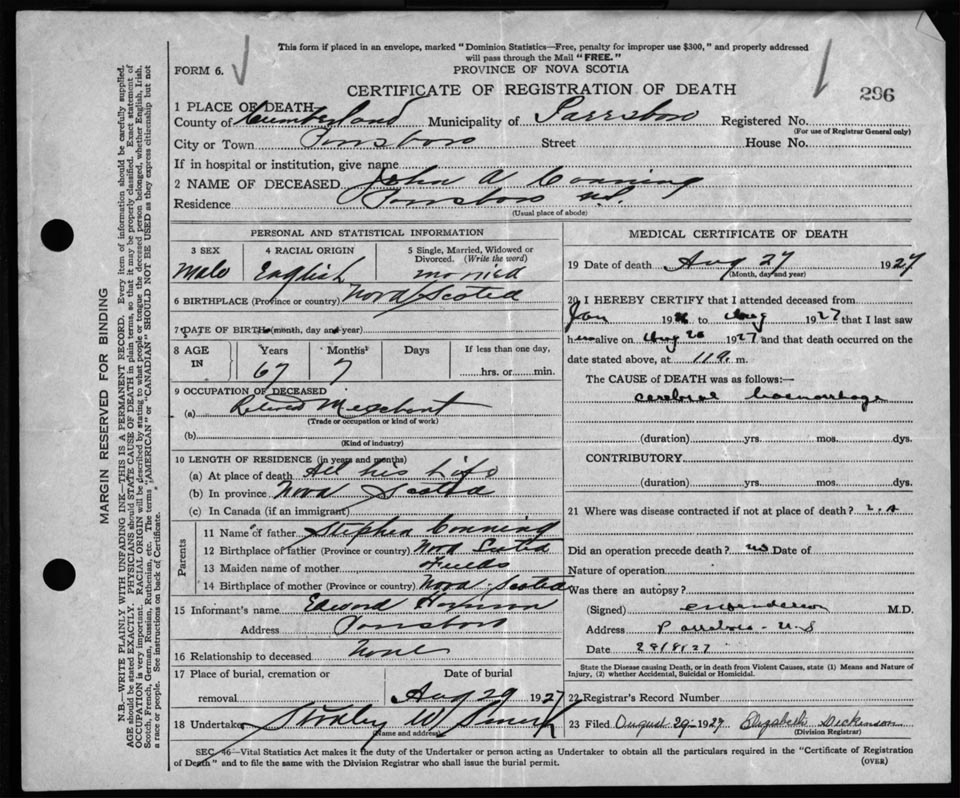 This form if placed in an envelope, marked "Dominion Statistics—Free, penalty for improper use $300," and properly addressed
will pass through the Mail "FREE."
FORM 6. PROVINCE OF NOVA SCOTIA
CERTIFICATE OF REGISTRATION OF DEATH 296
1 PLACE OF DEATH
County of Cumberland Municipality of Parrsboro Registered No.
(For use of Registrar General only)
City or Town Parrsboro Street House No.
If in hospital or institution, give name
2 NAME OF DECEASED John A Conning
Residence Parrsboro N.S.
(Usual place of abode)
PERSONAL AND STATISTICAL INFORMATION
3 SEX 4 RACIAL ORIGIN 5 Single, Married, Widowed or Divorced. (Write the word)
Male English Married
6 BIRTHPLACE (Province or country) Nova Scotia
7 DATE OF BIRTH (month, day and year)
8 AGE IN Years Months Days If less than one day,
67 7 hrs. or min.
9 OCCUPATION OF DECEASED
(a) Retired Merchant
(Trade or occupation or kind of work)
(b)
(Kind of industry)
10 LENGTH OF RESIDENCE (in years and months)
(a) At place of death All his Life
(b) In province Nova Scotia
(c) In Canada (if an immigrant)
Parents
11 Name of father Stephen Conning
12 Birthplace of father (Province or country) Nova Scotia
13 Maiden name of mother Fields
14 Birthplace of mother (Province or country) Nova Scotia
15 Informant's name Edward
Address Parrsboro
16 Relationship to deceased None
17 Place of burial, cremation or removal Date of burial
Aug 29 1927
18 Undertaker W
(Name and address)
MEDICAL CERTIFICATE OF DEATH
19 Date of death Aug 27 1927
(Month, day and year)
20 I HEREBY CERTIFY that I attended deceased from
Jan 19 to Aug 1927 that I last saw
h alive on Aug 1927 and that death occurred on the
date stated above, at 11 m.
The CAUSE OF DEATH was as follows:—
cerebral haemorrhage
(duration) yrs. mos. dys.
CONTRIBUTORY
(duration) yrs. mos. dys.
21 Where was disease contracted if not at place of death?
Did an operation precede death? no Date of
Nature of operation
Was there an autopsy?
(Signed) M.D.
Address Parrsboro N.S
Date 28/8/27
State the Disease causing Death, or in death from Violent Causes, state (1) Means and Nature of
Injury, (2) whether Accidental, Suicidal or Homicidal.
22 Registrar's Record Number
23 Filed August 29 1927 Elizabeth Dickinson
(Division Registrar)
SEC. 46—Vital Statistics Act makes it the duty of the Undertaker or person acting as Undertaker to obtain all the particulars required in the "Certificate of Registration
of Death" and to file the same with the Division Registrar who shall issue the burial permit. (OVER)
MARGIN RESERVED FOR BINDING
N.B.—WRITE PLAINLY WITH UNFADING INK—THIS IS A PERMANENT RECORD. Every item of information should be carefully supplied.
AGE should be stated EXACTLY. PHYSICIANS should STATE CAUSE OF DEATH in plain terms, so that it may be properly classified. Exact statement of
OCCUPATION is very important. RACIAL ORIGIN will be described by stating to what people or tongue the deceased person belonged, whether English, Irish,
Scotch, French, German, Russian, Ruthenian, etc. The terms "AMERICAN" or "CANADIAN" SHOULD NOT BE USED as they express citizenship but not
a race or people. See instructions on back of Certificate.